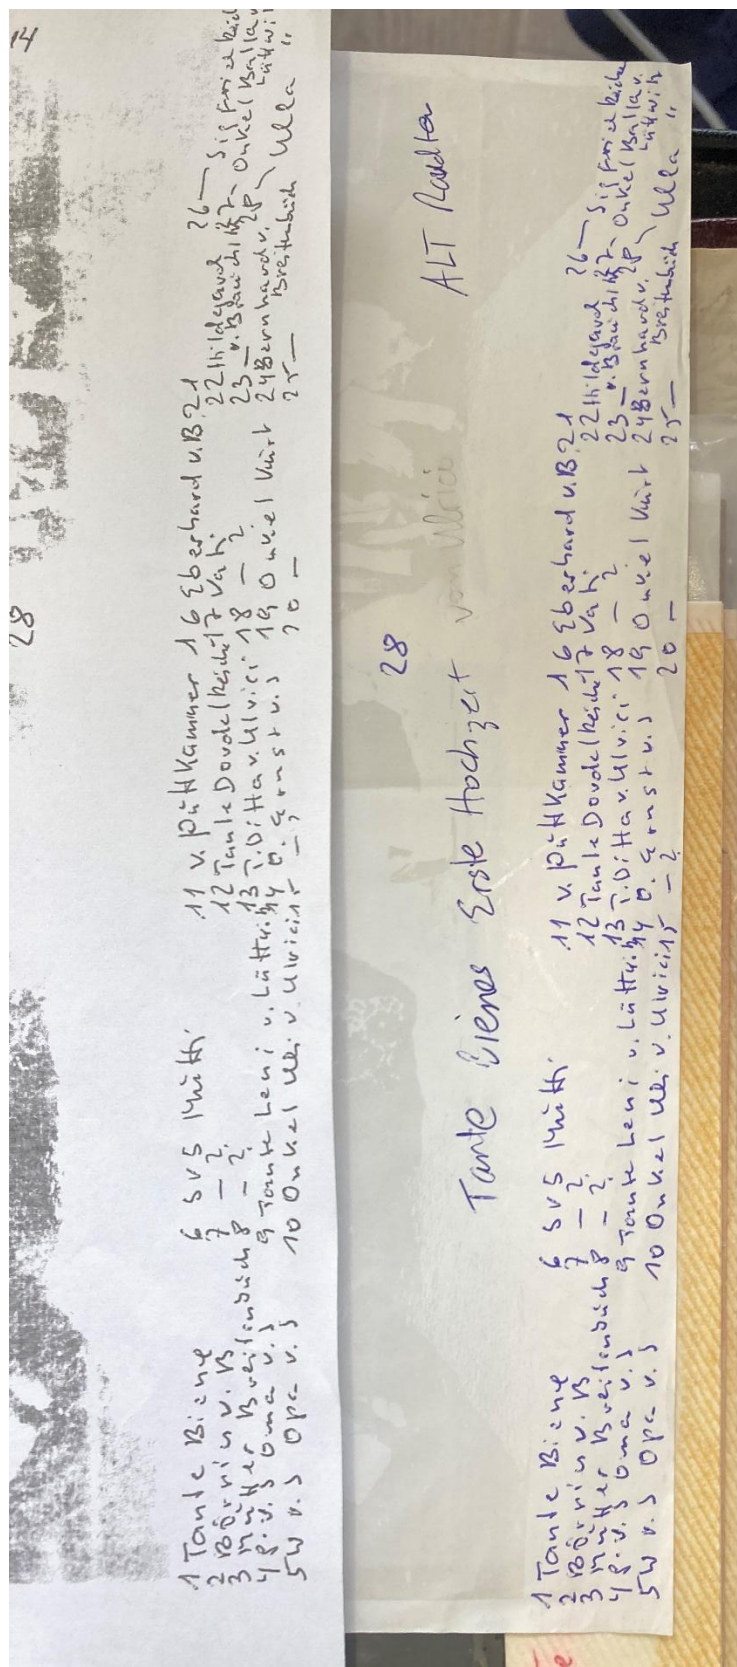 14
28
1 Tante Biene
2 Börries v. B
3 Mutter Breitenbuch
4 P. v. S Oma v. S
5 W v. S Opa v. S
6 S v S Mutti
7 — ?
8 — ?
9 Tante Leni v. Lüttwitz
10 Onkel Uli v. Ulrici
11 v. Puttkammer
12 Tante Dordel Reiche
13 T. Ditta v. Ulrici
14 O. Ernst v. S
15 — ?
16 Eberhard v. B
17 Vati
18 — ?
19 Onkel Kurt
20 —
21
22 Hildegard v. Brauchi
23 —
24 Bernhard v. Breitenbuch
25 —
26 — Sigfried Reiche
27 Onkel Balla v. Lüttwitz
28 Ulla "
ALT Raudten
28
Tante Bienes Erste Hochzeit von Ulrici
1 Tante Biene
2 Börries v. B
3 Mutter Breitenbuch
4 P. v. S Oma v. S
5 W v. S Opa v. S
6 S v S Mutti
7 — ?
8 — ?
9 Tante Leni v. Lüttwitz
10 Onkel Uli v. Ulrici
11 v. Puttkammer
12 Tante Dordel Reiche
13 T. Ditta v. Ulrici
14 O. Ernst v. S
15 — ?
16 Eberhard v. B
17 Vati
18 — ?
19 Onkel Kurt
20 —
21
22 Hildegard v. Brauchi
23 —
24 Bernhard v. Breitenbuch
25 —
26 — Sigfried Reiche
27 Onkel Balla v. Lüttwitz
28 Ulla "